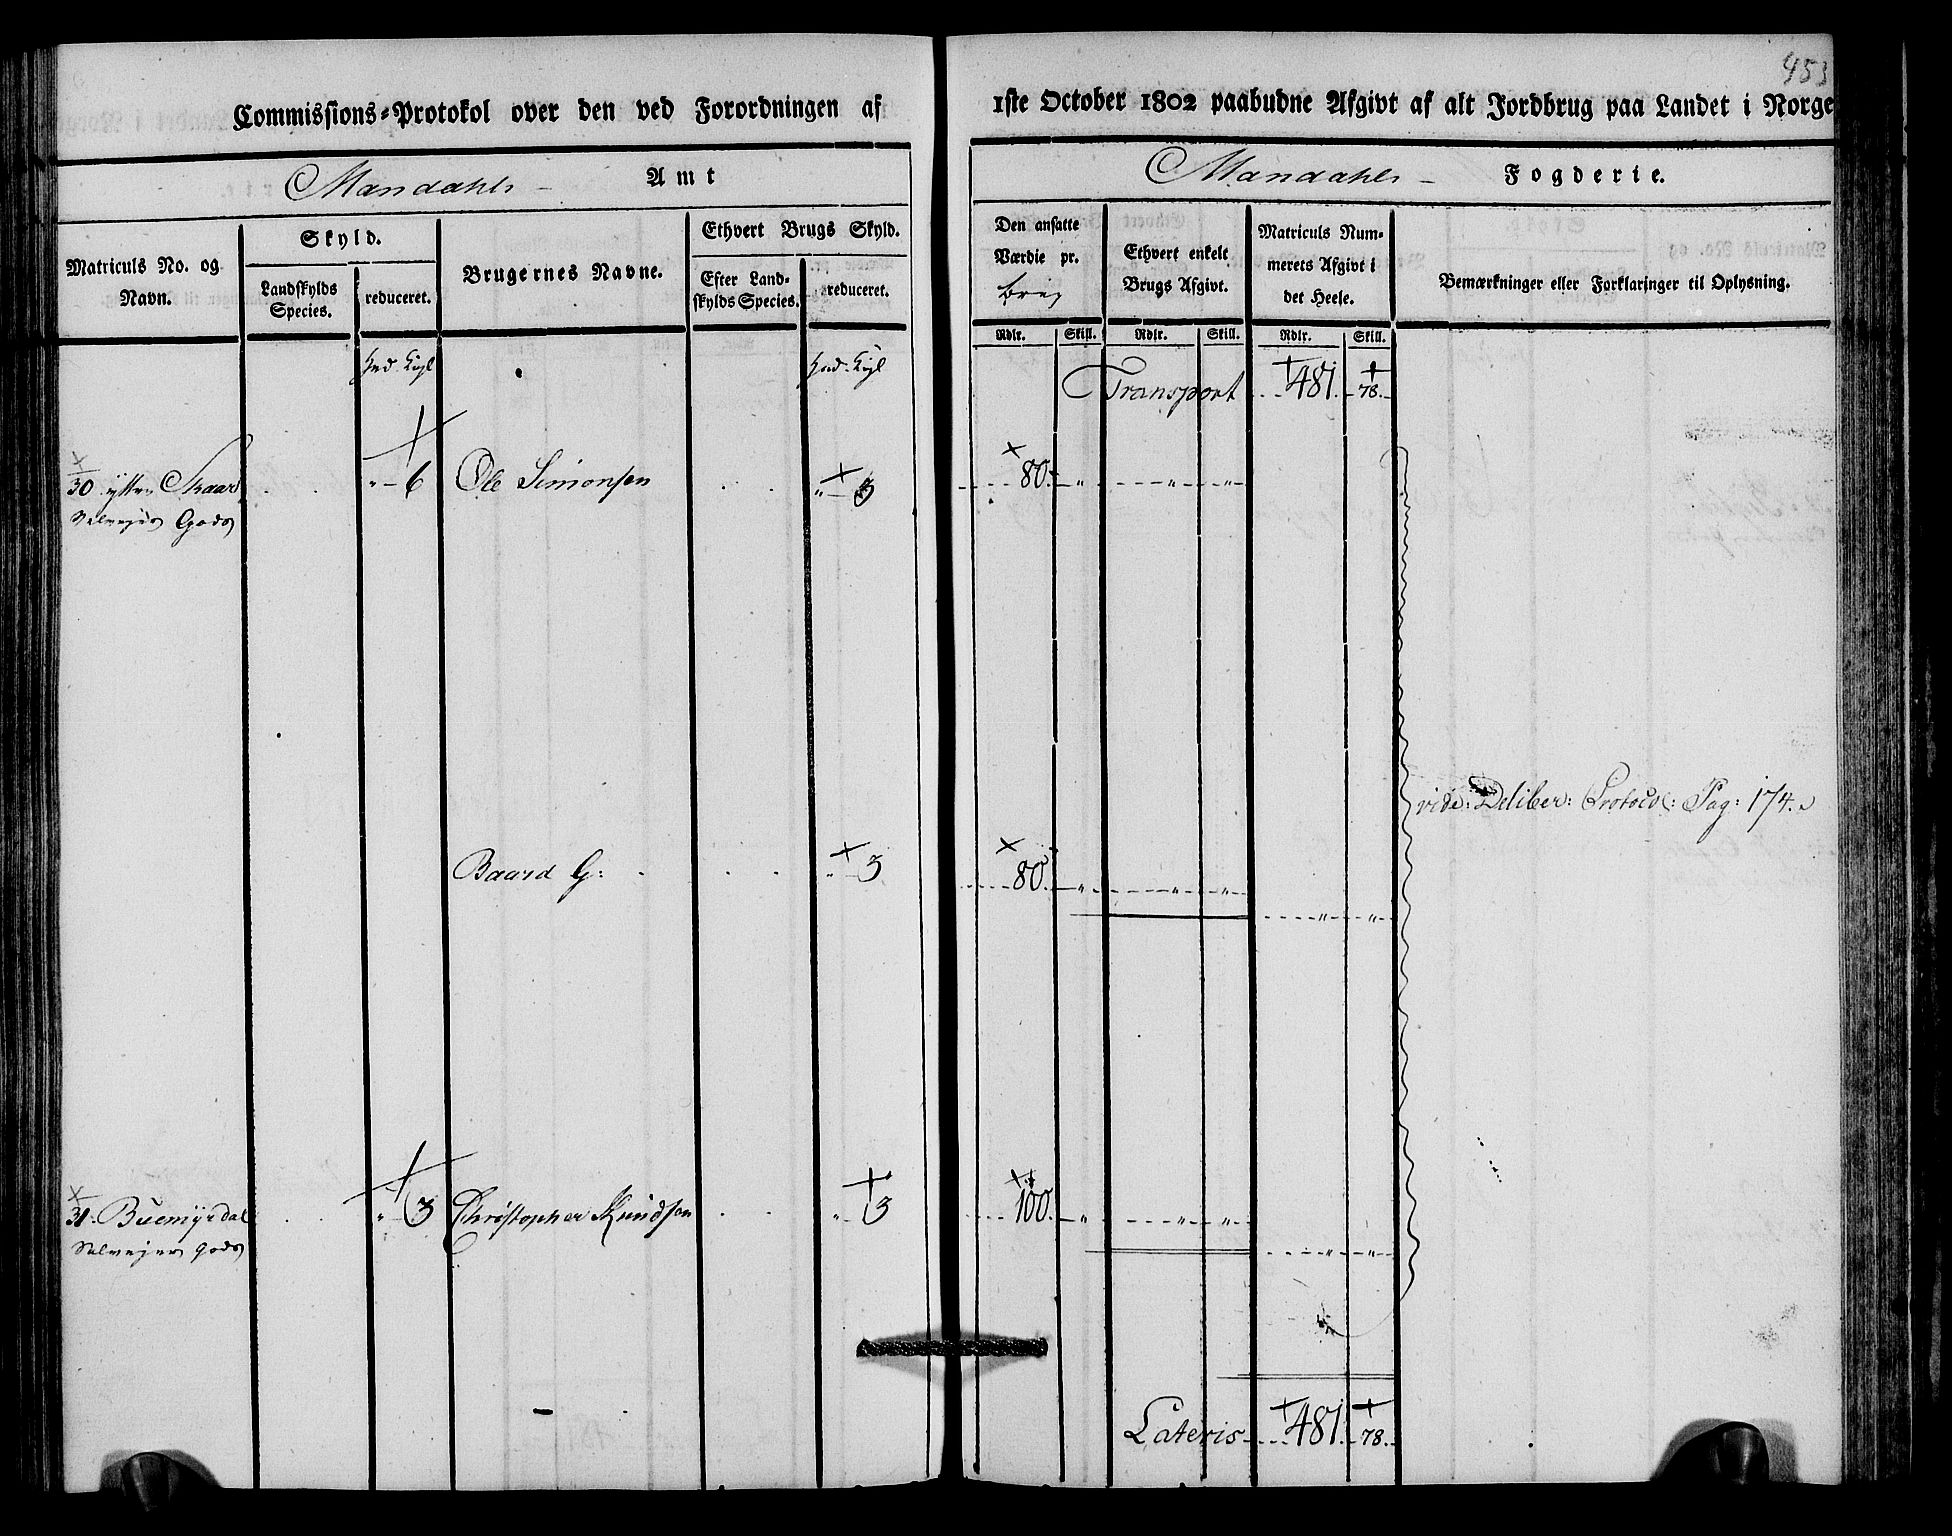 453
Commissions-Protokol over den ved Forordningen af 1ste October 1802 paabudne Afgivt af alt Jordbrug paa Landet i Norge
Mandahls - Amt
Mandahls - Fogderie.
Matriculs No. og Navn.
Skyld.
Landskylds Species.
reduceret.
Brugernes Navne.
Ethvert Brugs Skyld.
Efter Landskylds Species.
reduceret.
Den ansatte Værdie pr.
Ethvert enkelt Brugs Afgivt.
Matriculs Nummerets Afgivt i det Heele.
Bemærkninger eller Forklaringer til Oplysning.
Rdlr. Skill. Rdlr. Skill. Rdlr. Skill.
Transport 481. 78.
30 yttre Skaar " - 6 Ole Simonsen " - 3 80. - " - " - "
Selvejer Gods
vide: Deliber: Protocol: Pag: 174.
Baard G: " - 3 80. - " - " - "
" - "
31. Buemyrdal " - 3 Christopher Knudsen " - 3 100. - " - " - "
Selvejer Gods " - "
Lateris 481. 78.